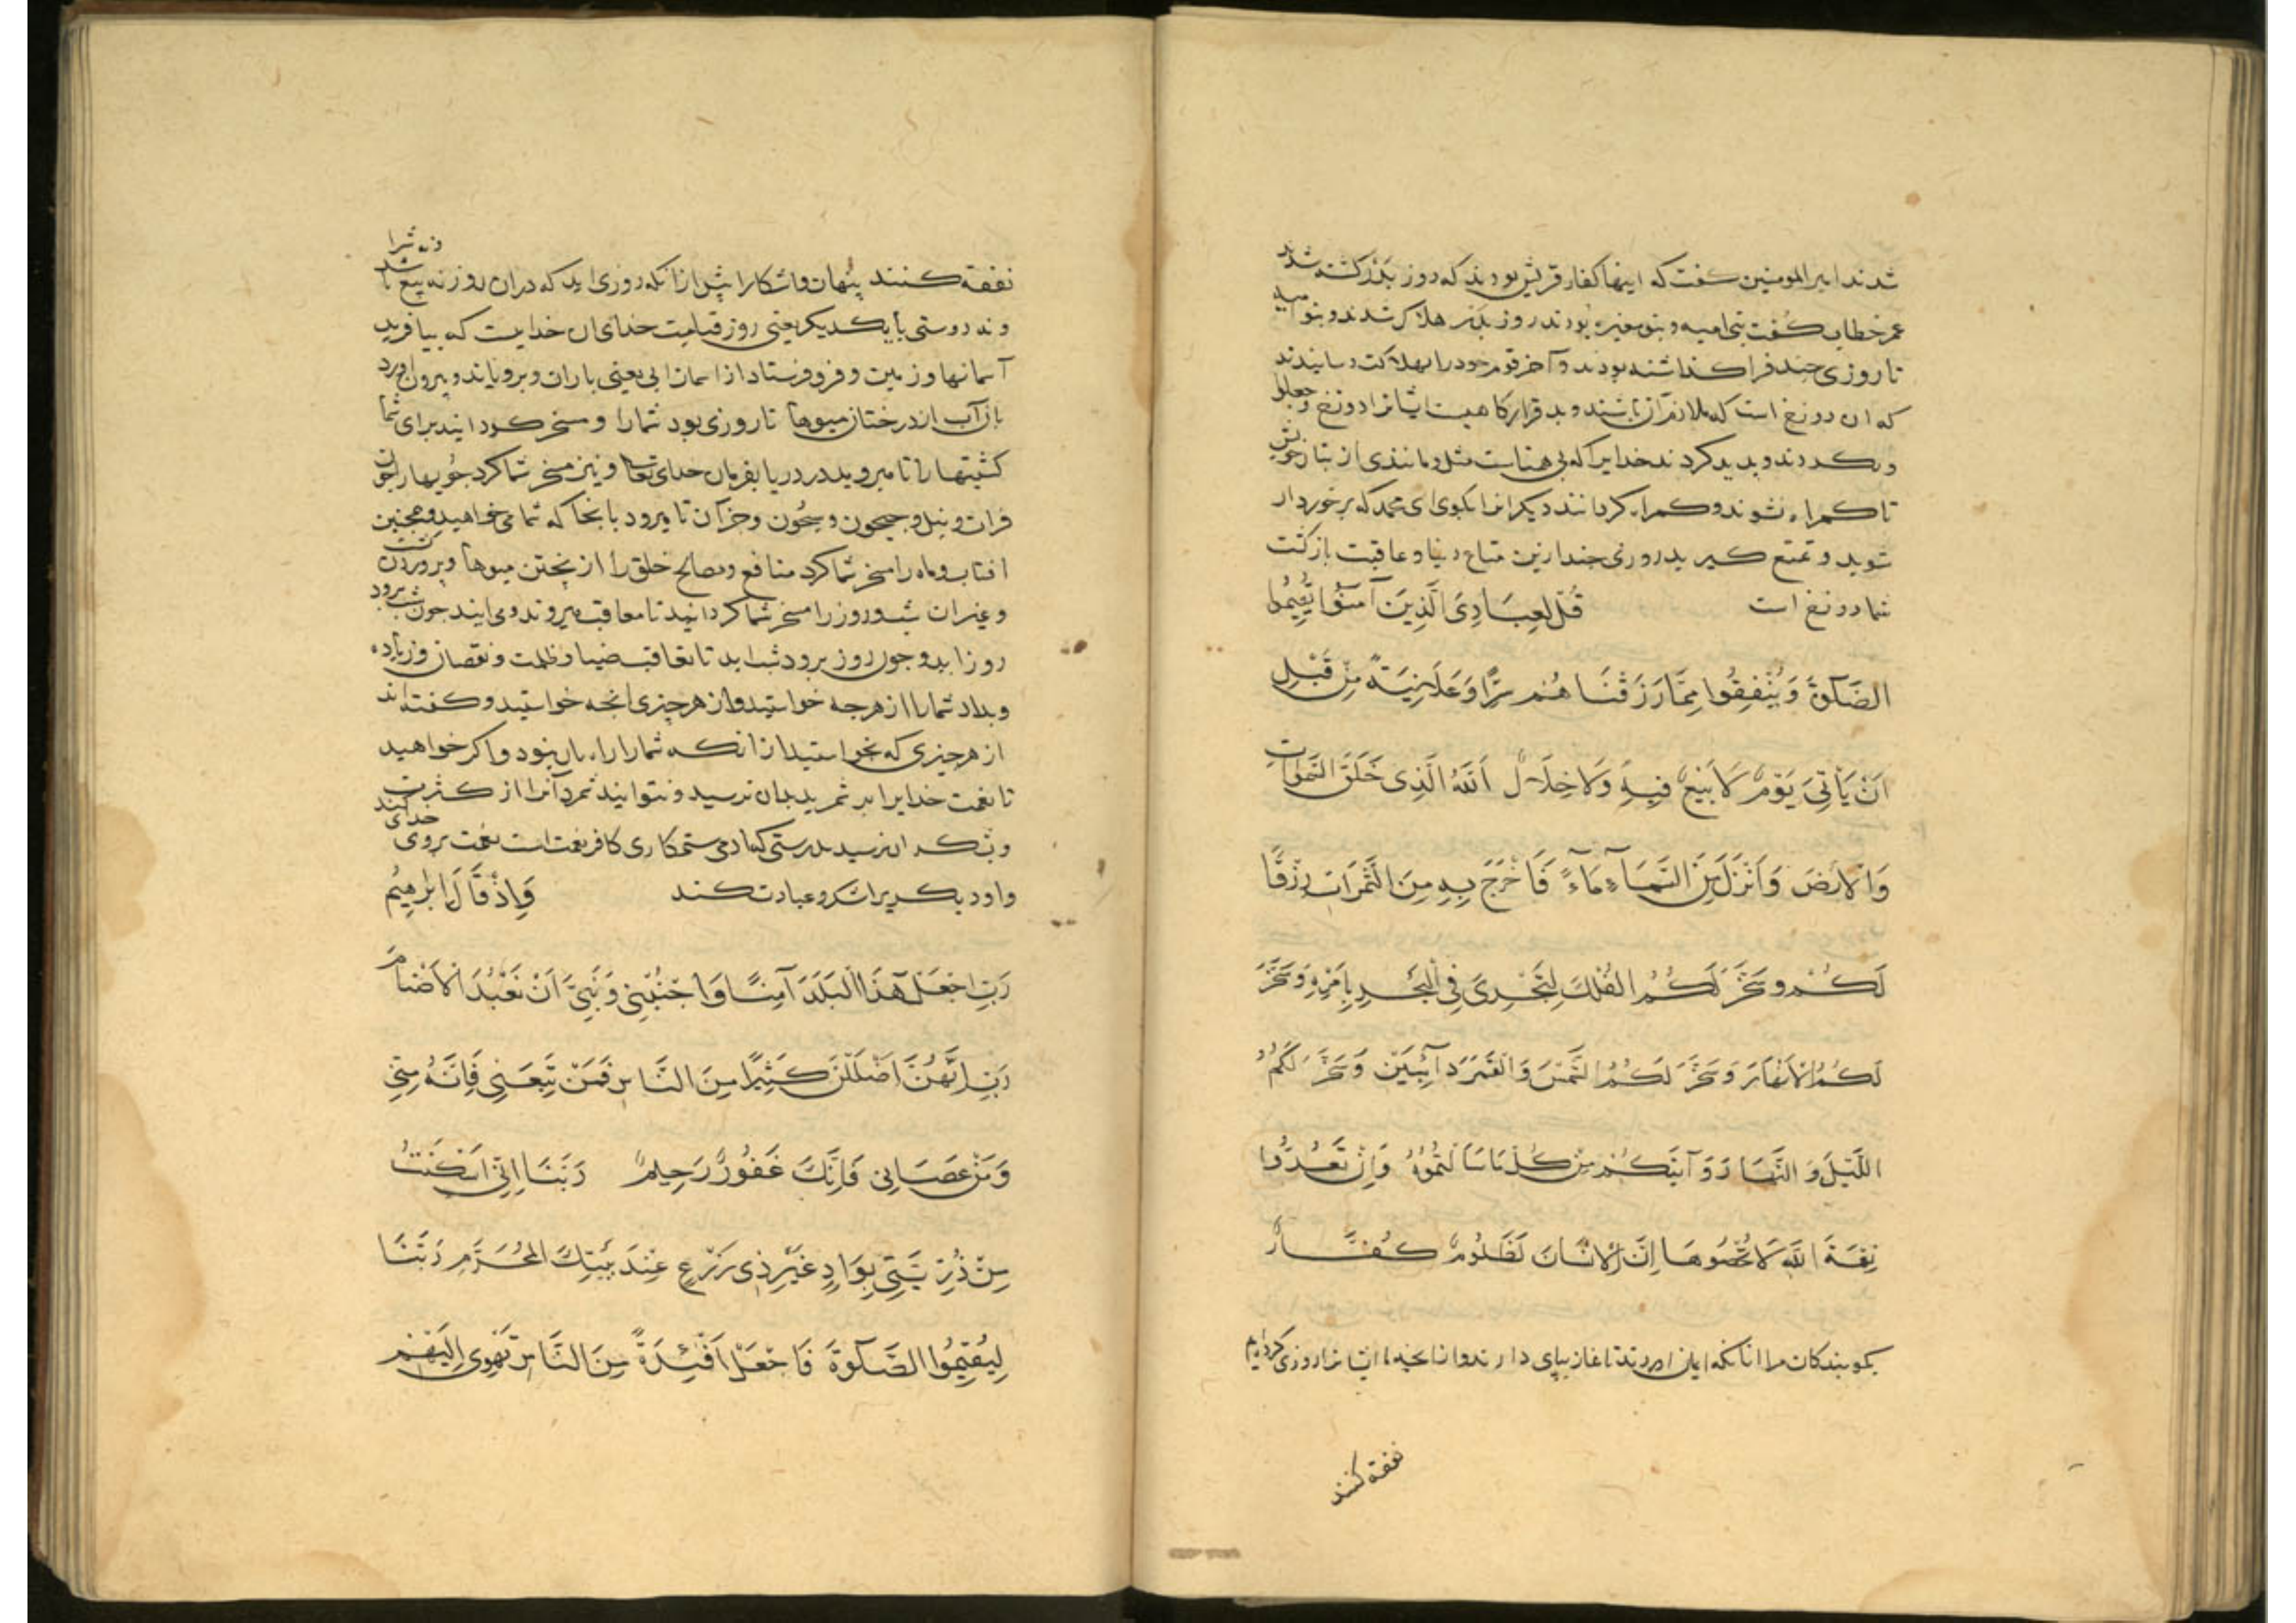 شدند امیر المومنین کفت که اینها کفار قریش بودند که روز بدر کشته شدند
عمر خطاب کفت بنی امیه و بنو مغیره بودند روز بدر هلاک شدند و بنو امیه
تا روزی جند فرا کذاشته بودند و آخر قوم خود را بهلاکت رسانیدند
که ان دوزخ است که ملازم آن باشند و بد قرارکاهیست ایشانرا دوزخ وجعلوا
و کردند و بدید کردند خدایرا که بی همتاست مثل و مانندی از بتان خویش
تا کمراه شوند و کمراه کردانند دیکرانرا بکوی ای محمد که برخوردار
شوید و تمتع کیرید روزی جند ازین متاع دنیا و عاقبت بازکشت
شما دوزخ است قُل لِعِبَادِيَ الَّذِينَ آمَنُوا يُقِيمُوا
الصَّلَوةَ وَيُنْفِقُوا مِمَّا رَزَقْنَاهُمْ سِرًّا وَعَلَانِيَةً مِنْ قَبْلِ
اَنْ يَأْتِيَ يَوْمٌ لَا بَيْعٌ فِيهِ وَلَا خِلَالٌ اَللهُ الَّذِي خَلَقَ السَّمَوَاتِ
وَالْاَرْضَ وَاَنْزَلَ مِنَ السَّمَآءِ مَآءً فَاَخْرَجَ بِهِ مِنَ الثَّمَرَاتِ رِزْقًا
لَكُمْ وَسَخَّرَ لَكُمُ الْفُلْكَ لِتَجْرِيَ فِي الْبَحْرِ بِاَمْرِهِ وَسَخَّرَ
لَكُمُ الْاَنْهَارَ وَسَخَّرَ لَكُمُ الشَّمْسَ وَالْقَمَرَ دَآئِبَيْنِ وَسَخَّرَ لَكُمُ
اللَّيْلَ وَالنَّهَارَ وَآتَيكُمْ مِنْ كُلِّ مَا سَاَلْتُمُوهُ وَاِنْ تَعُدُّوا
نِعْمَةَ اللهِ لَا تُحْصُوهَا اِنَّ الْاِنْسَانَ لَظَلُومٌ كَفَّارٌ
بکو بندکان مرا انانکه ایمان اوردند تا نماز بپای دارند و از انجه ما ایشانرا روزی کردایم
نفقه کنند
نفقه کنند پنهان و اشکارا پیش از انکه روزی اید که دران روز نه بیع باشد
و نه دوستی با یکدیکر یعنی روز قیامت خدای ان خدایست که بیافرید
آسمانها و زمین و فرو فرستاد از اسمان ابی یعنی باران و برویاند و بیرون اورد
بان آب از درختان میوها تا روزی بود شما را و مسخر کردانید برای شما
کشتیها را تا میروید در دریا بفرمان خدای تعالی و نیز مسخر شما کرد جویها را چون
فرات و نیل و جیحون و سیحون و جز آن تا میرود بانجا که شما می خواهید و همجنین
افتاب و ماه را مسخر شما کرد منافع و مصالح خلق را از پختن میوها و پروردن کشت
و غیر ان شب و روز را مسخر شما کردانید تا معاقب میروند و می ایند جون شب برود
روز اید و جون روز برود شب اید تا تعاقب ضیا و ظلمت و نقصان و زیاده
و بداد شما را از هرجه خواستید و از هر چیزی انجه خواستید و کفته اند
از هر چیزی که نخواستید از انکه شما را راه بان نبود و اکر خواهید
تا نعمت خدایرا بر شمرید بدان نرسید و نتوانید شمرد آنرا از کثرت
و بشکر ان نرسید بدرستی که ادمی ستمکاری کافر نعمت است نعمت بروی خدای کند
واو دیکریرا شکر و عبادت کند وَاِذْ قَالَ اِبْرَهِيمُ
رَبِّ اجْعَلْ هَذَا الْبَلَدَ آمِنًا وَاجْنُبْنِي وَبَنِيَّ اَنْ نَعْبُدَ الْاَصْنَامَ
رَبِّ اِنَّهُنَّ اَضْلَلْنَ كَثِيرًا مِنَ النَّاسِ فَمَنْ تَبِعَنِي فَاِنَّهُ مِنِّي
وَمَنْ عَصَانِي فَاِنَّكَ غَفُورٌ رَحِيمٌ رَبَّنَا اِنِّي اَسْكَنْتُ
مِنْ ذُرِّيَّتِي بِوَادٍ غَيْرِ ذِي زَرْعٍ عِنْدَ بَيْتِكَ الْمُحَرَّمِ رَبَّنَا
لِيُقِيمُوا الصَّلَوةَ فَاجْعَلْ اَفْئِدَةً مِنَ النَّاسِ تَهْوِي اِلَيْهِمْ